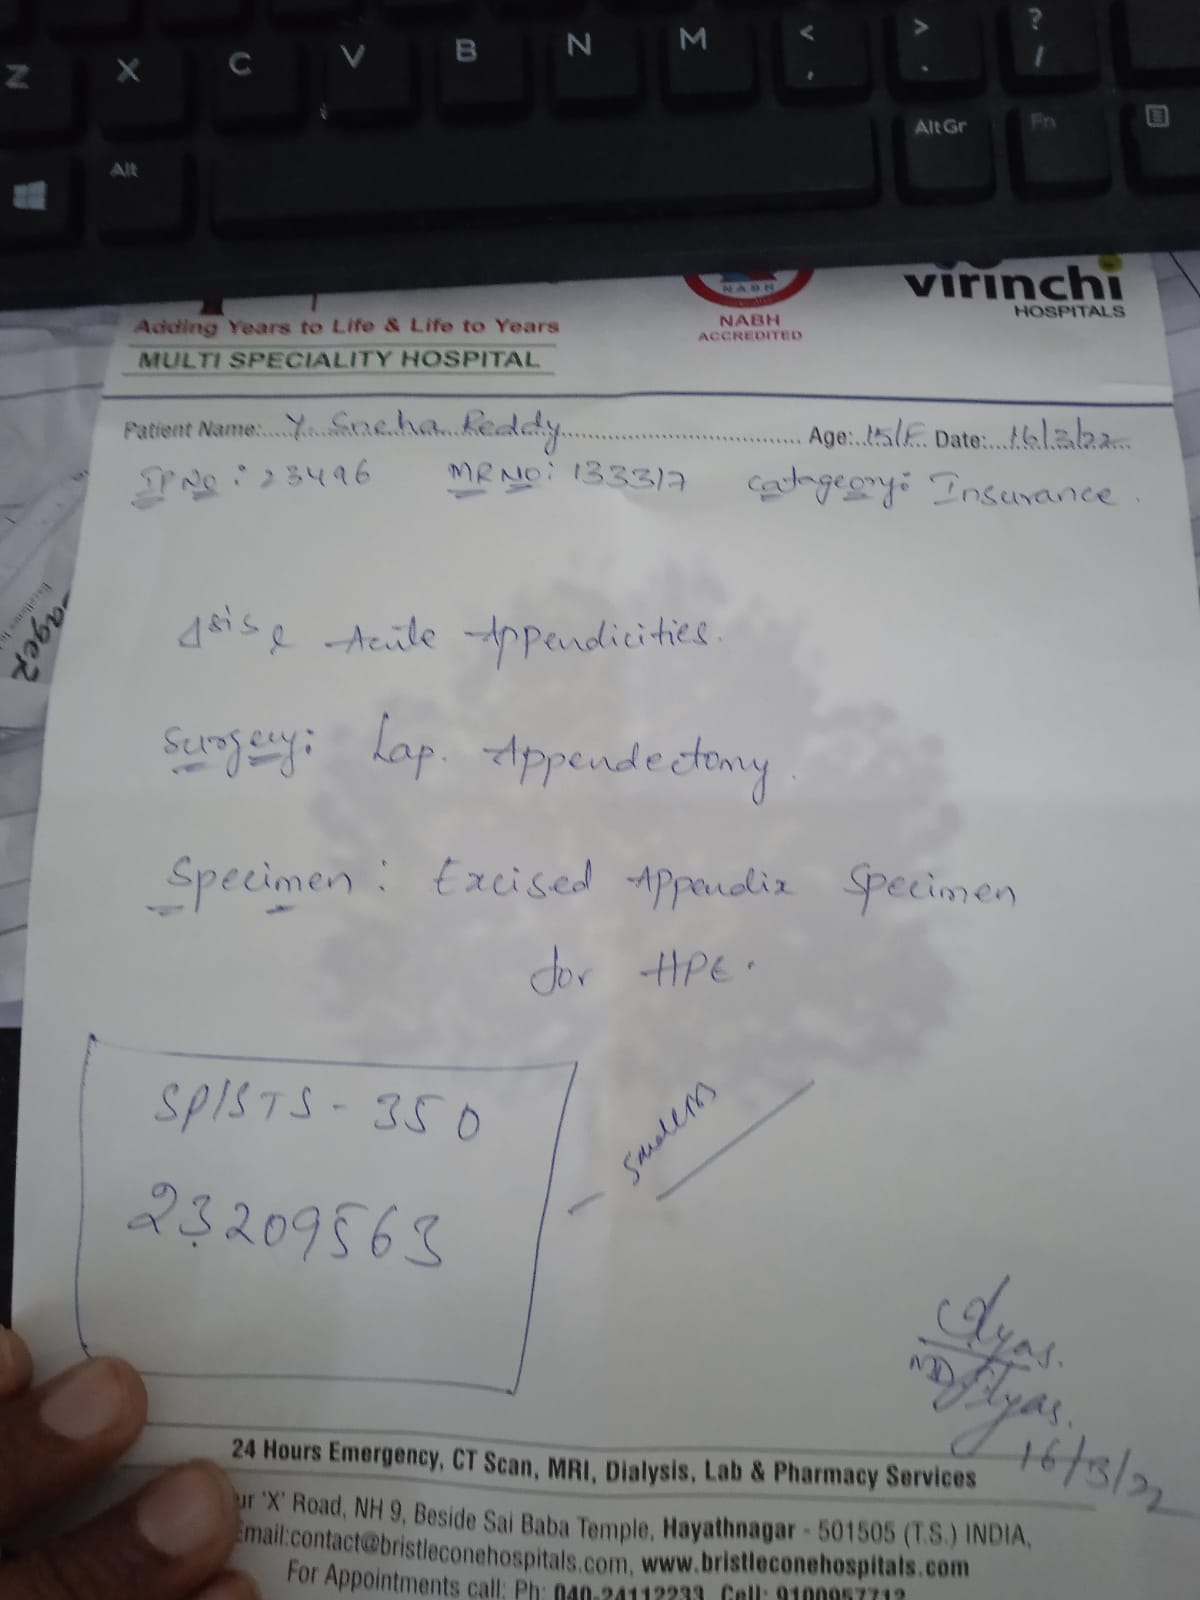 Z X C V B N M < , > . ? /
Alt AltGr Fn
NABH
virinchi
HOSPITALS
Adding Years to Life & Life to Years
NABH
ACCREDITED
MULTI SPECIALITY HOSPITAL
Patient Name: Y. Sneha Reddy Age: 15/F Date: 16/3/22
IP No: 23496 MR NO: 133317 Catageory: Insurance.
Acute Appendicities.
Surgery: Lap. Appendectomy.
Specimen: Excised Appendix Specimen
for HPE.
SP/STS-350
23209563
MD Ilyas.
16/3/22
24 Hours Emergency, CT Scan, MRI, Dialysis, Lab & Pharmacy Services
'X' Road, NH 9, Beside Sai Baba Temple, Hayathnagar - 501505 (T.S.) INDIA,
Email:contact@bristleconehospitals.com, www.bristleconehospitals.com
For Appointments call: Ph: 040-24112233 Cell: 9100957712